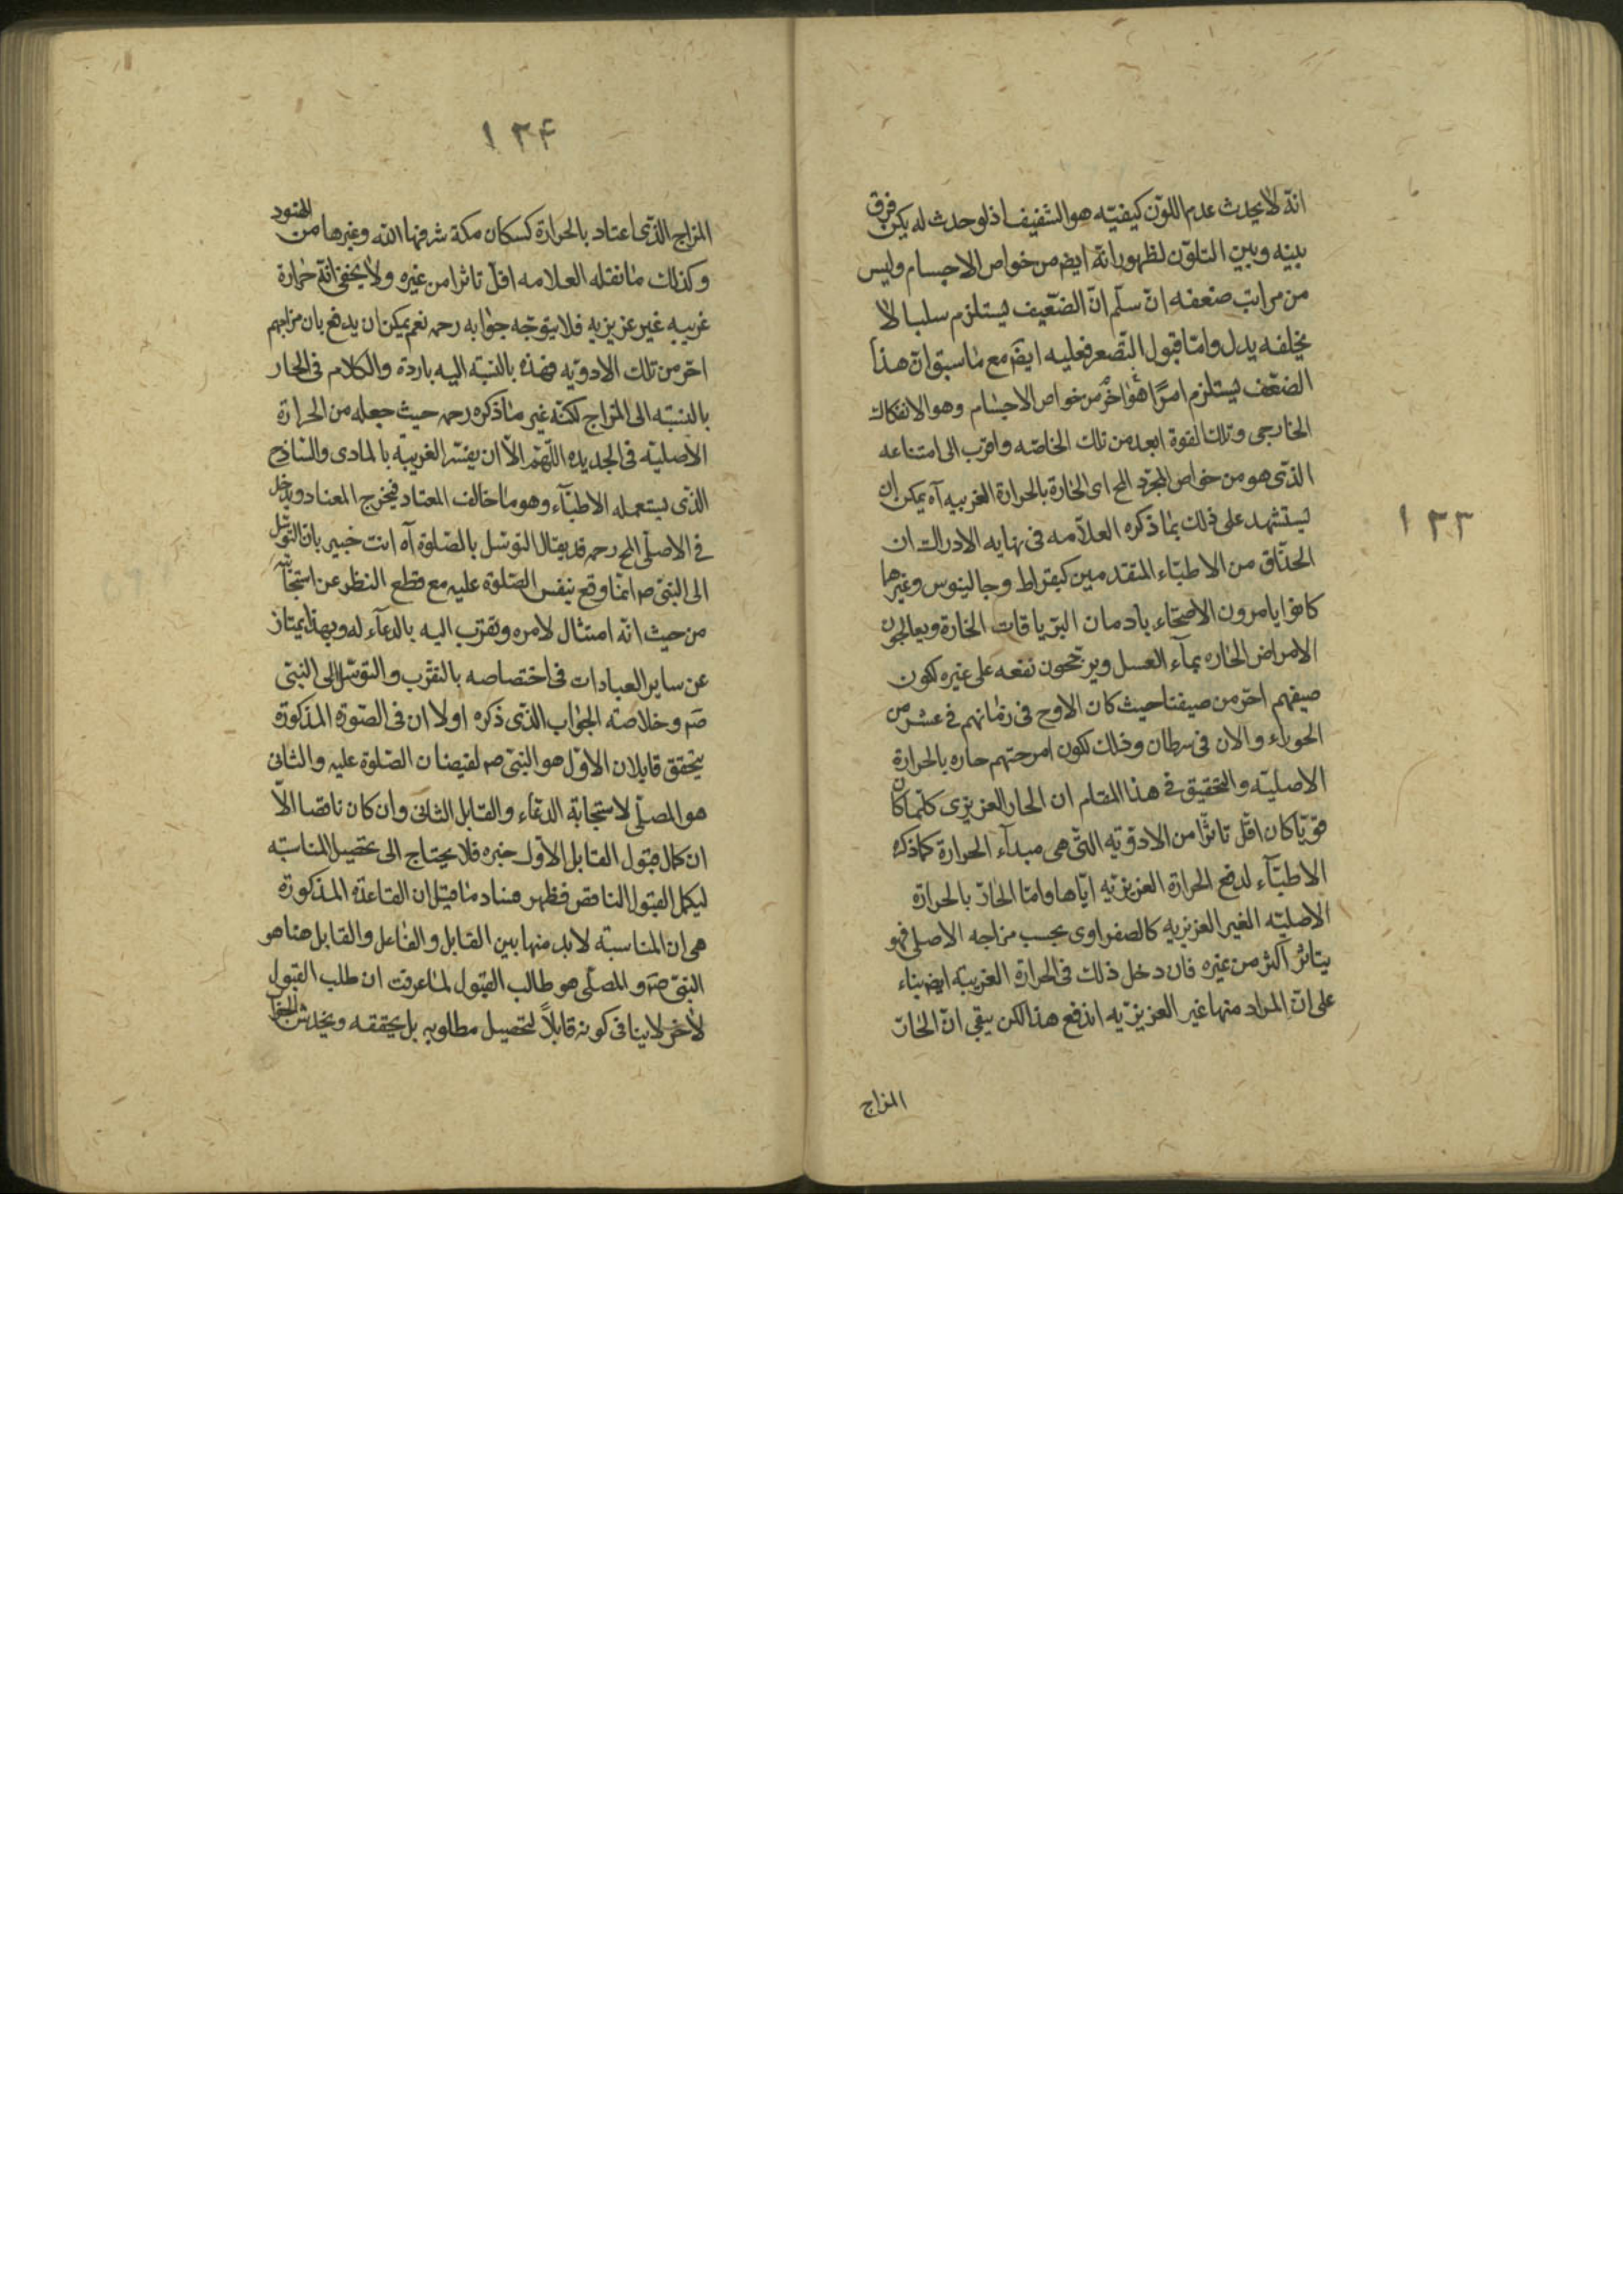 ١٣٣
انّه لا يحدث عدم اللون كيفيّه هو الشفيف اذ لو حدث له يكن فرق
بينه وبين التلوّن لظهور انّه ايضم من خواص الاجسام وليس
من مراتب ضعفه انّ سلّم انّ الضعّيف يستلزم سلبا لا
يخلفه بدل وامّا قبول التصعر فعليه ايضَم مع ما سبق ان هذا
الضعّف يستلزم امرًا هو اخر من خواص الاجسام وهو الانفكاك
الخارجى وتلك القوة ابعد من تلك الخاصّه واقرب الى امتناعه
الذّى هو من خواص المجرّد المح اى الحارة بالحرارة الغريبيه آه يمكن ان
يستشهد على ذلك بما ذكره العلاّمه فى نهايه الادراك ان
الحذّاق من الاطبّاء المتقدمين كبقراط وجالينوس وغيرهما
كانوا يامرون الاصحّاء بادمان الترياقات الحارة ويعالجون
الامراض الحاره بمآء العسل ويرجّحون نفعه على غيره لكون
صيفهم احرّ من صيفنا حيث كان الاوج فى زمانهم فى عشر من
الجوزاء والان فى سرطان وذلك لكون امزجتهم حاره بالحرارة
الاصليّه والتحقيق فى هذا المقام ان الحار العزيزى كلّما كان
قويّا كان اقل تاثرًا من الادوّيه التى هى مبدآء الحرارة كما ذكره
الاطبّآء لدفع الحرارة العزيزيّه ايّاها وامّا الحارّ بالحرارة
الاصليّه الغير العزيزيه كالصفراوى بحسب مزاجه الاصلى فهو
يتاثر اكثر من غيره فان دخل ذلك فى الحرارة الغريبة ايضم بناء
على انّ المراد منها غير العزيزيّه اندفع هذا لكن يبقى انّ الحارّ
المزاج
١٣۴
المزاج الذّى اعتاد بالحرارة كسكان مكة شرفها الله وغيرها من الهنود
وكذلك ما نقله العلامه اقلّ تاثرا من غيره ولا يخفى انّه حرارة
غريبه غير عزيزيه فلا يتوجّه جوابه رحمه نعم يمكن ان يدفع بان مزاجهم
احرّ من تلك الادويّه فهذه بالنسّبة اليه باردة والكلام فى الحار
بالنسبه الى المزاج لكنّه غير ما ذكره رحمه حيث جعله من الحرارة
الاصليّه فى الجديده اللّهمّ الاّ ان يفسّر الغريبّه بالمادى والسّاذج
الذّى يستعمله الاطبّآء وهو ما خالف المعتاد فيخرج المعتاد ويدخل
فى الاصلّى المح رحمه قد يقال التوسّل بالصّلوة آه انت خبير بان التوسّل
الى النبّى صم انمّا وقع بنفس الصّلوة عليه مع قطع النظر عن استجابته
من حيث انّه امتثال لامره وتقرّب اليه بالدعآء له وبهذا يمتاز
عن ساير العبادات فى اختصاصه بالتقرّب والتوسّل الى النبّى
صَم وخلاصّه الجواب الذّى ذكره اولا ان فى الصّورة المذكورة
يتحقق قابلان الاوّل هو النبّى صم لفيضان الصّلوة عليه والثانى
هو المصلّى لاستجابة الدعّاء والقابل الثانى وان كان ناقصا الاّ
ان كمال قبول القابل الاول جبره فلا يحتاج الى تحصيل المناسبّه
ليكمل القبول الناقص فظهر فساد ما قيل ان القاعدّة المذكورة
هى ان المناسبة لابد منها بين القابل والفاعل والقابل هنا هو
النبّى صَم والمصلّى هو طالب القبول لما عرفت ان طلب القبول
لاخر لا ينافى كونه قابلاً لتحصيل مطلوبه بل يحققه ويخدش الجواب